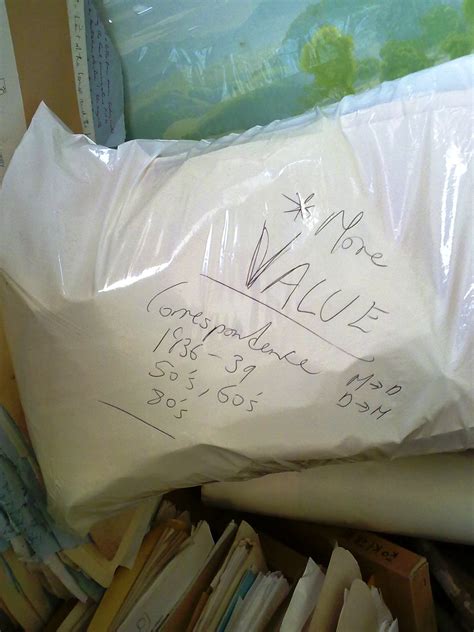 * More
VALUE
Correspondence
1936 - 39
50's, 60's
80's
M→D
D→M